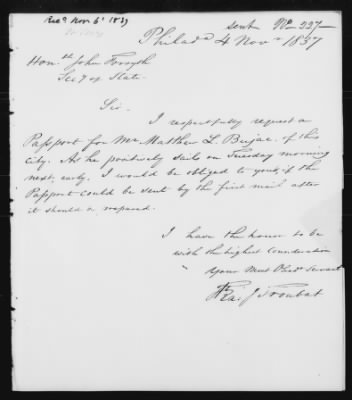 Rec'd Nov. 6th 1837
sent No 227
Philada 4 Nov. 1837
Honble John Forsyth
Secy of State
Sir.
I respectfully request a
Passport for Mr Matthew L. Bujac. of this
city. As he positively sails on Tuesday morning
next, early. I would be obliged to you, if the
Passport could be sent by the first mail after
it should be prepared.
I have the honor to be
with the highest Consideration
Your Most Obedt Servant
Fra: J Troubat